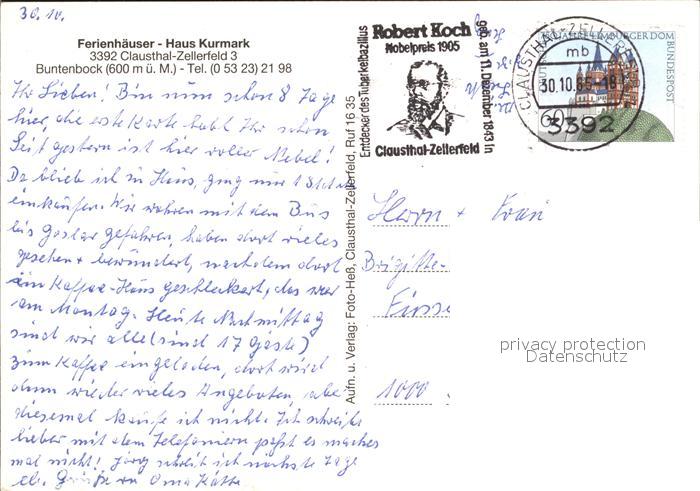 30.10.
Ferienhäuser - Haus Kurmark
3392 Clausthal-Zellerfeld 3
Buntenbock (600 m ü. M.) - Tel. (0 53 23) 21 98
Ihr Lieben! Bin nun schon 8 Tage
hier, die erste Karte habt Ihr schon
Seit gestern ist hier voller Nebel!
Da blieb ich in Haus, ging nur 1 Stck
einkaufen. Wir wahren mit dem Bus
bis Goslar gefahren, haben dort vieles
gesehen + bewundert, nachdem dort
ein Kaffee-Haus geschleckert, das war
am Montag. Heute Nachmittag
sind wir alle (sind 17 Gäste)
zum Kaffee eingeladen, dort wird
dann wieder vieles Angeboten, aber
diesesmal kaufe ich nichts. Ich schreibe
lieber mit dem Telefonieren paßt es manches
mal nicht! Jörg schreib ich nächste Tage
Grüße von Oma Käthe
Aufn. u. Verlag: Foto-Heß, Clausthal-Zellerfeld, Ruf 16 35
Entdecker des Tuberkelbazillus
Robert Koch
Nobelpreis 1905
geb. am 11. Dezember 1843 in
Clausthal-Zellerfeld
CLAUSTHAL-ZELLERF
mb
30.10.85-18
3392
LIMBURGER DOM
BUNDESPOST
Herrn + Frau
Brigitte
1000
privacy protection
Datenschutz